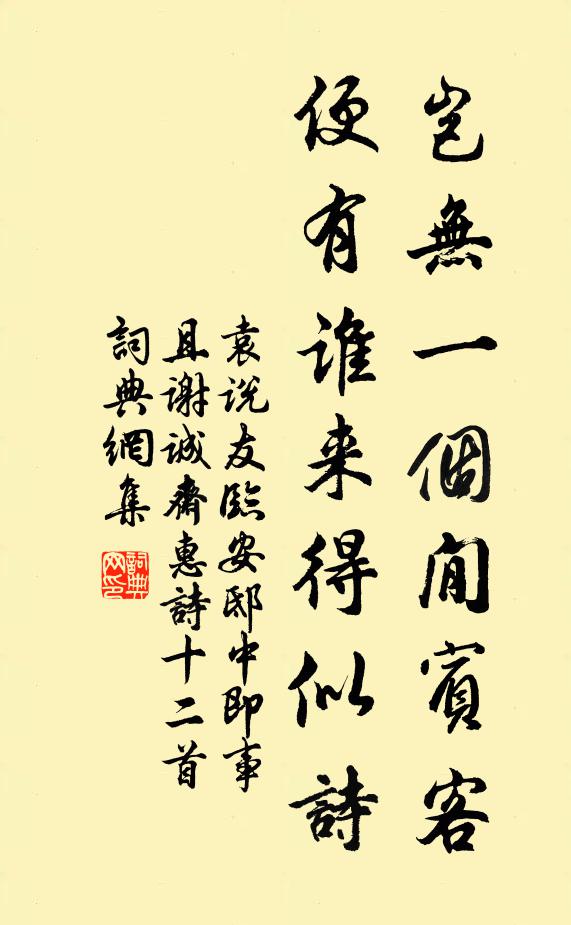 豈無一個閒賓客
便有誰来得似詩
袁説友臨安邸中即事
且謝誠齋惠詩十二首
詞典網集
詞典網印